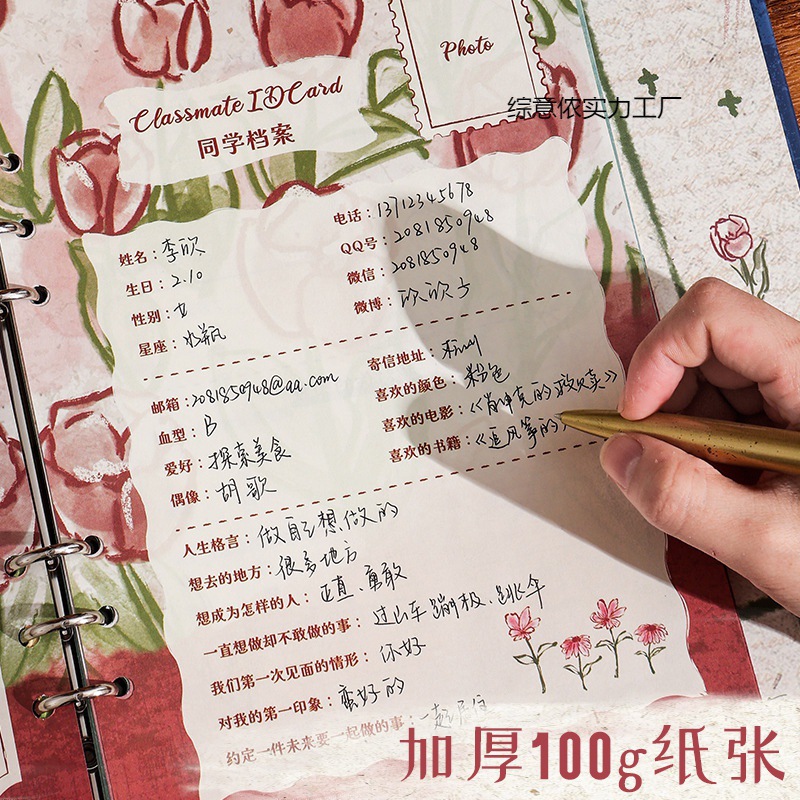 Photo
综意侬实力工厂
Classmate ID Card
同学档案
姓名：李欣
生日：2.10
性别：女
星座：水瓶
电话：13712345678
QQ号：2081850948
微信：2081850948
微博：欣欣子
邮箱：2081850948@qq.com
血型：B
爱好：探索美食
偶像：胡歌
寄信地址：
喜欢的颜色：粉色
喜欢的电影：《肖申克的救赎》
喜欢的书籍：《追风筝的
人生格言：做自己想做的
想去的地方：很多地方
想成为怎样的人：正直、勇敢
一直想做却不敢做的事：过山车、蹦极、跳伞
我们第一次见面的情形：你好
对我的第一印象：蛮好的
约定一件未来要一起做的事：一起
加厚100g纸张